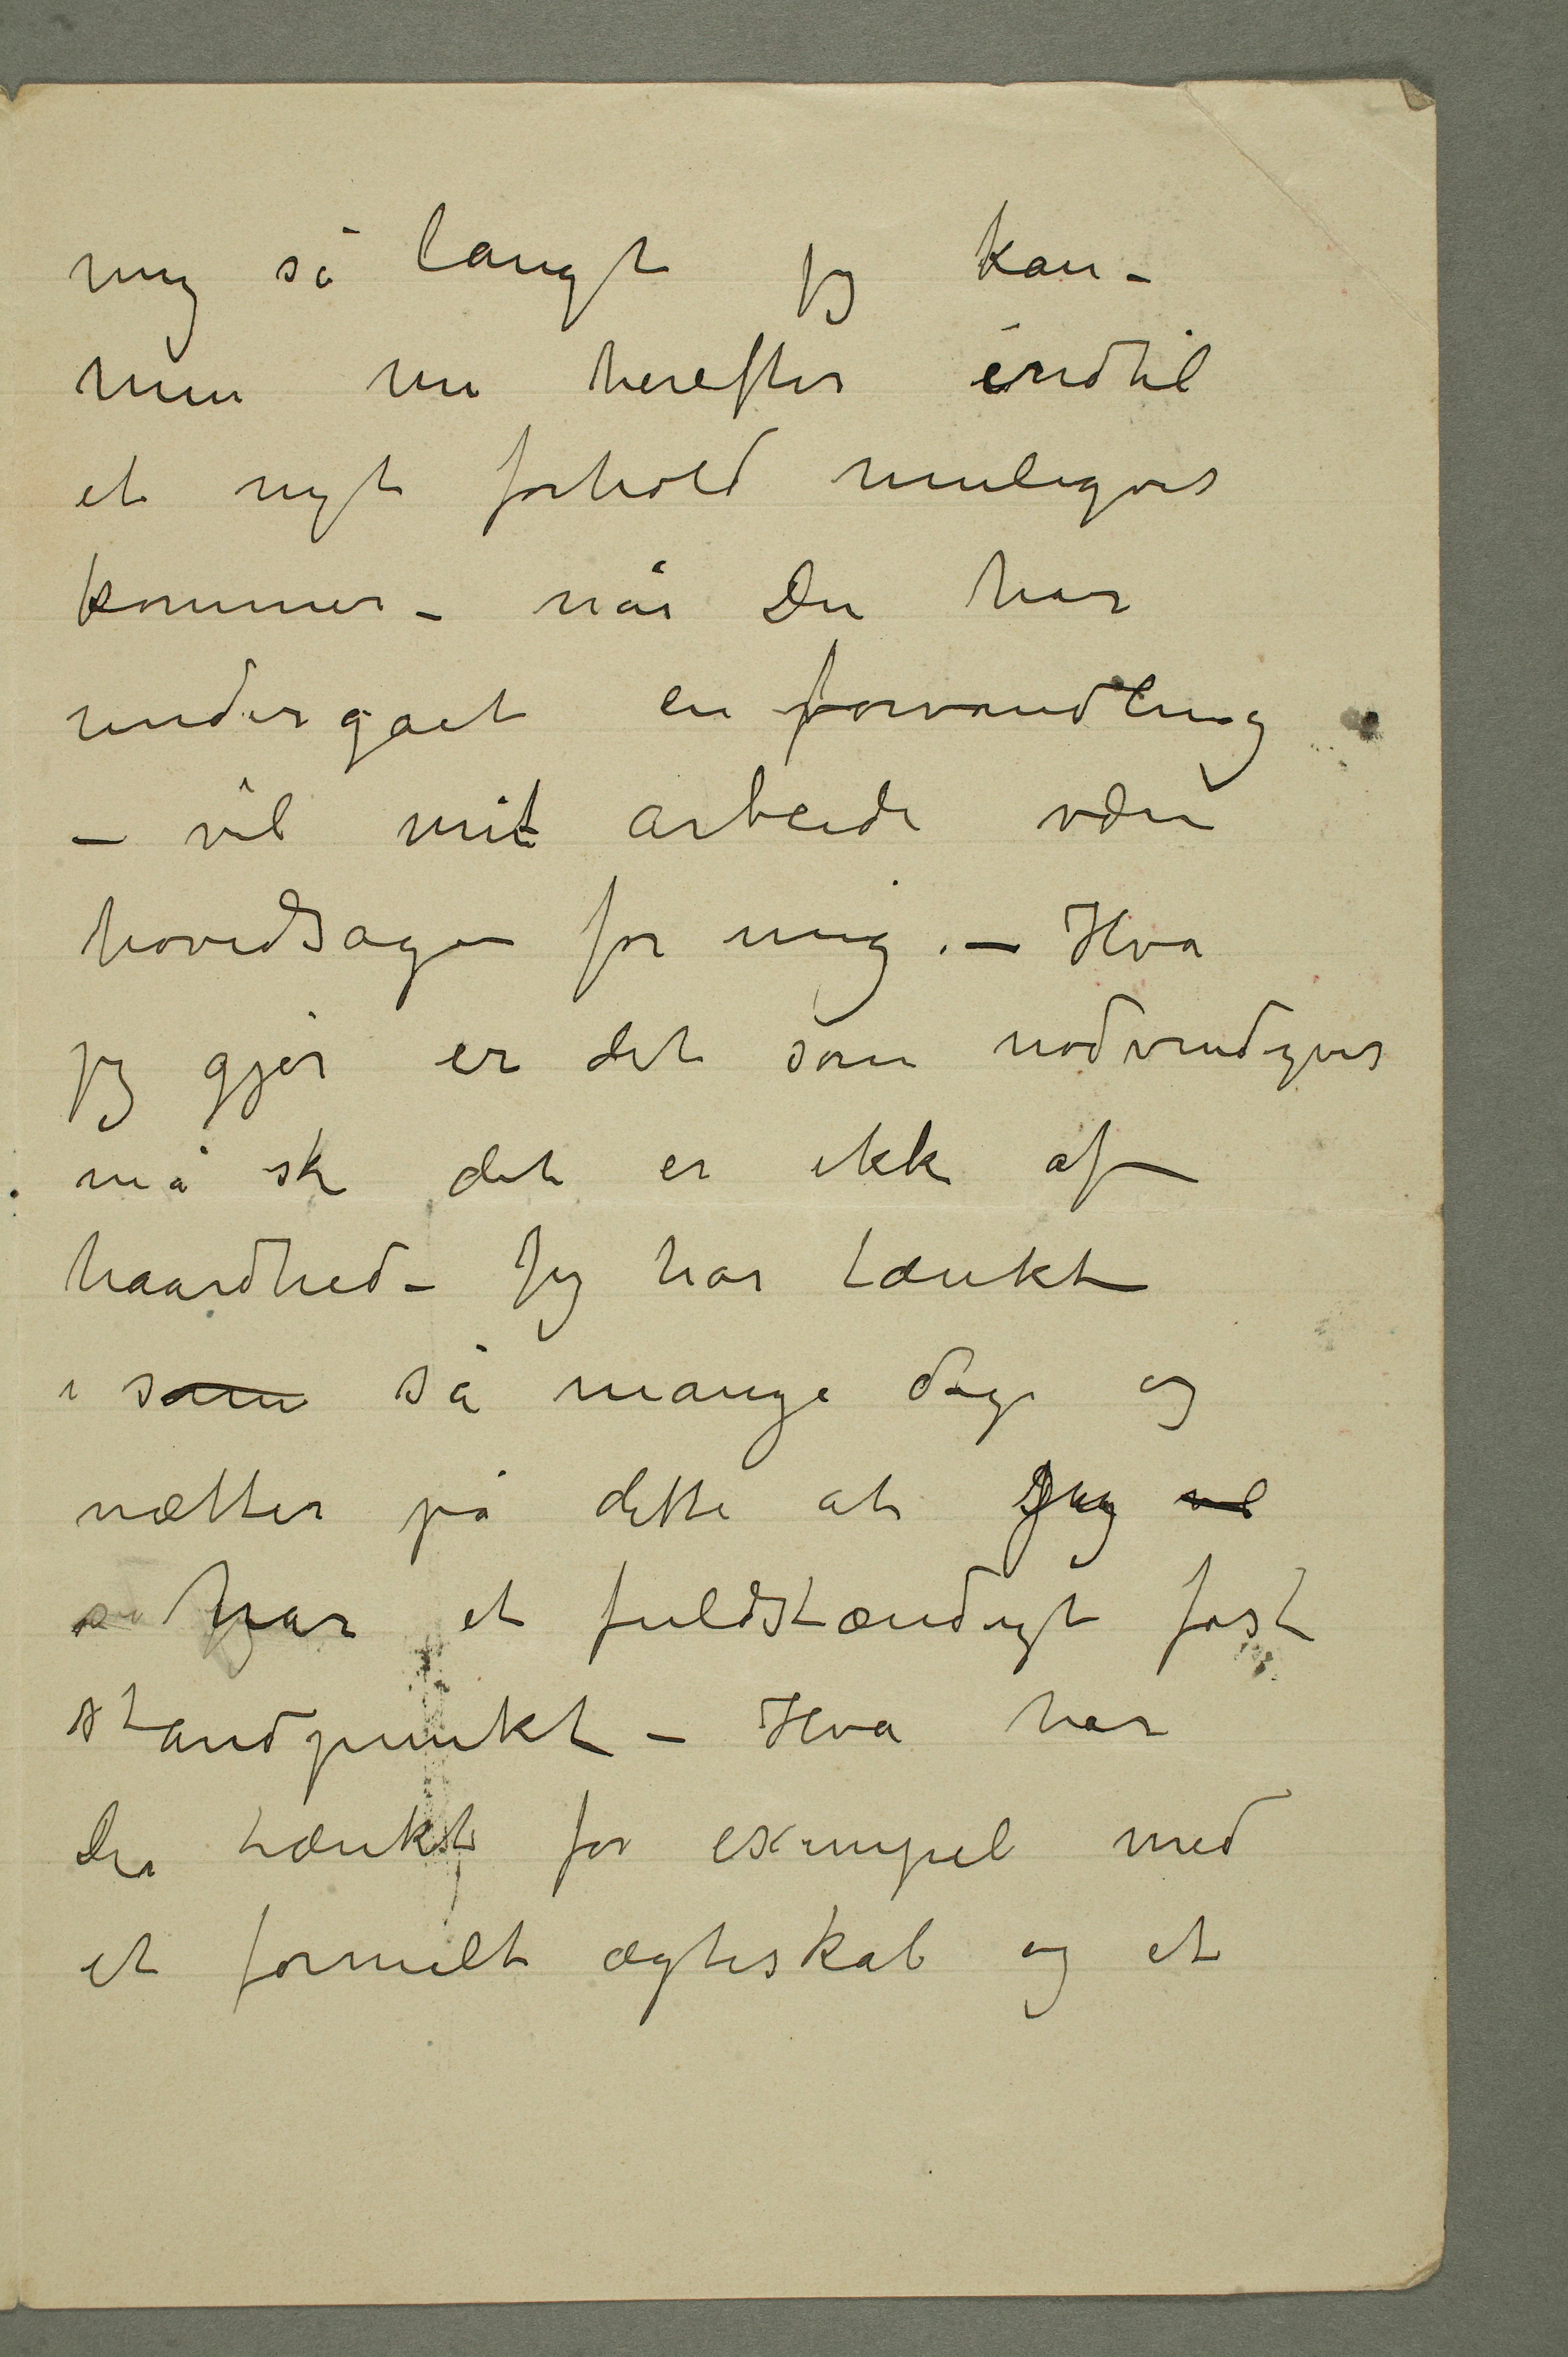 mig så langt jeg kan –
men nu herefter indtil
et nyt forhold muligvis
kommer – når Du har
undergået en forvandling
– vil mit arbeide være
hovedsagen for mig. – Hva
jeg gjør er det som nødvendigvis
må ske det er ikke af
haardhed – Jeg har tænkt
i som så mange dage og
nætter på dette at jeg vil
har et fuldstændigt fast
standpunkt – Hva har
Du tænkt for exempel med
et formelt ægteskab og et